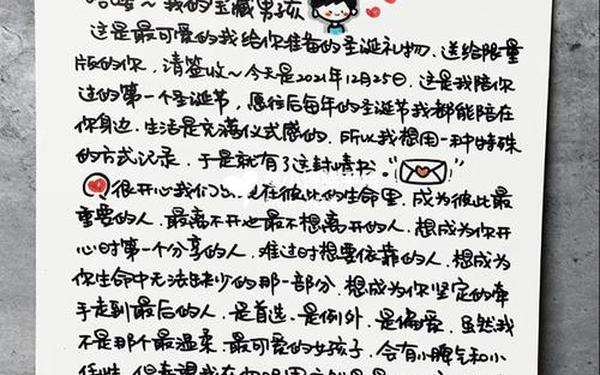 哈喽～我的宝藏男孩
这是最可爱的我给你准备的圣诞礼物.送给限量
版的你.请签收～今天是2021年12月25日.这是我陪你
过的第一个圣诞节,愿往后每年的圣诞节我都能陪在
你身边.生活是充满仪式感的.所以我想用一种特殊
的方式记录.于是就有了这封情书.
很开心我们出现在彼此的生命里.成为彼此最
重要的人.最离不开也最不想离开的人.想成为你开
心时第一个分享的人.难过时想要依靠的人.想成为
你生命中无法缺少的那一部分.想成为你坚定的牵
手走到最后的人.是首选.是例外.是偏爱.虽然我
不是那个最温柔.最可爱的女孩子.会有小脾气和小
任性.但幸运我在你眼里